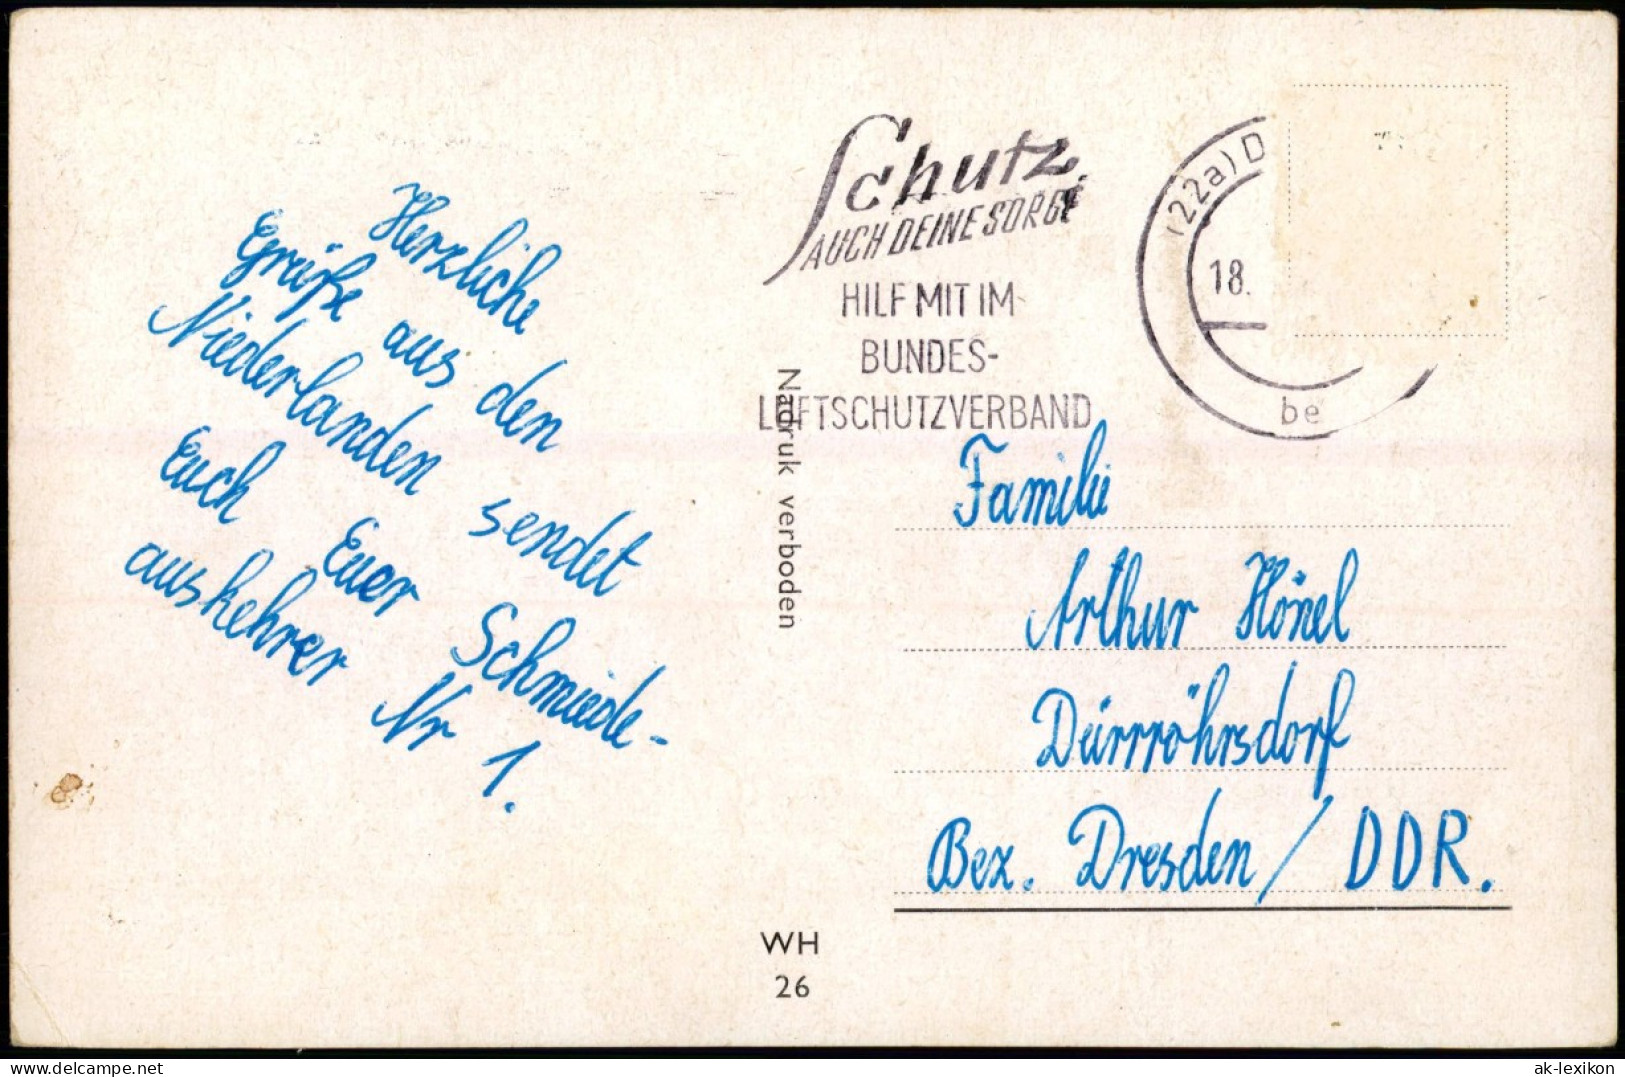 Herzliche
Grüße aus den
Niederlanden sendet
Euch Euer Schmiede-
auskehrer Nr 1.
Schutz
AUCH DEINE SORGE
HILF MIT IM
BUNDES-
LUFTSCHUTZVERBAND
(22a) D
18.
be
Nadruk verboden
Familie
Arthur Hönel
Dürrröhrsdorf
Bez. Dresden / DDR.
WH
26
oldthing.com
ak-lexikon